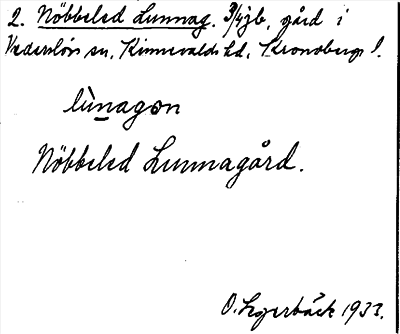 2. Nöbbeled Lunnag. 3/4 jb, gård i
Vederslövs sn, Kinnevalds hd, Kronobergs l.
lùnagɔn
Nöbbeled Lunnagård.
1933.